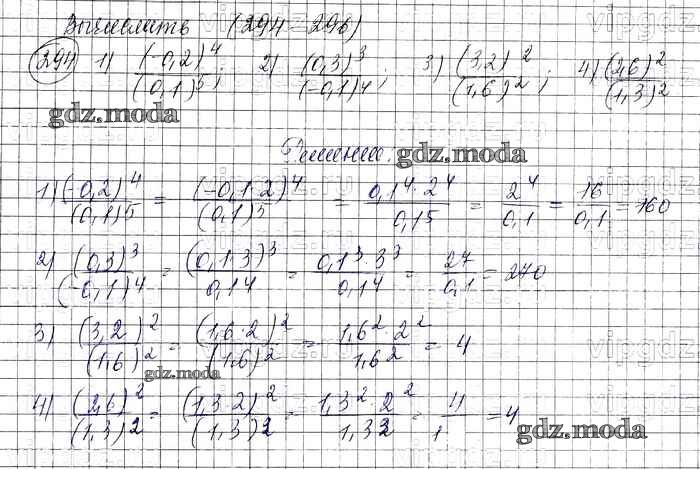 Вычислить (294-296)
294 1) (-0,2)^4/(0,1)^5; 2) (0,3)^3/(-0,1)^4; 3) (3,2)^2/(1,6)^2; 4) (2,6)^2/(1,3)^2
gdz.moda
Решение. gdz.moda
1) (-0,2)^4/(0,1)^5 = (-0,1·2)^4/(0,1)^5 = 0,1^4·2^4/0,1^5 = 2^4/0,1 = 16/0,1 = 160
2) (0,3)^3/(-0,1)^4 = (0,1·3)^3/0,1^4 = 0,1^3·3^3/0,1^4 = 27/0,1 = 270
3) (3,2)^2/(1,6)^2 = (1,6·2)^2/(1,6)^2 = 1,6^2·2^2/1,6^2 = 4
gdz.moda
4) (2,6)^2/(1,3)^2 = (1,3·2)^2/(1,3)^2 = 1,3^2·2^2/1,3^2 = 4/1 = 4
gdz.moda